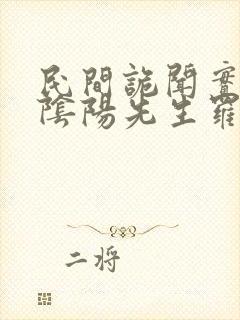 民間詭聞實
陰陽先生羅
二將